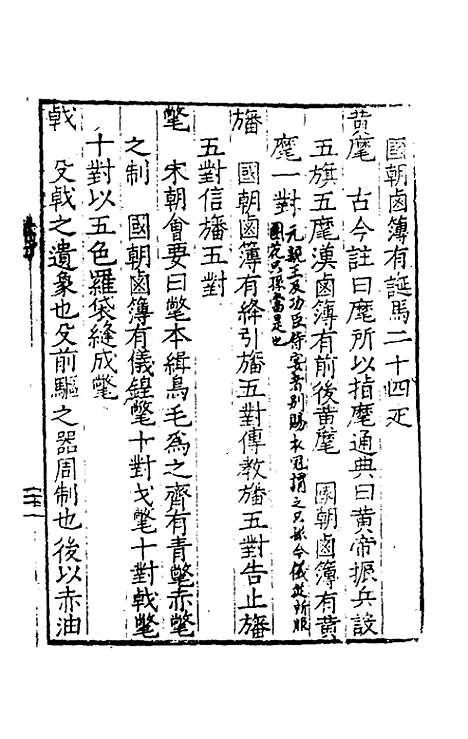 國朝鹵簿有誕馬二十四疋
黄麾　古今註曰麾所以指麾通典曰黄帝振兵設
五旗五麾漢鹵簿有前後黄麾　國朝鹵簿有黄
麾一對
元親王及功臣侍宴者别賜衣冠謂之只孫今儀從所服
團花只孫當是也
旛　國朝鹵簿有絳引旛五對傳教旛五對告止旛
五對信旛五對
氅　宋朝會要曰氅本緝鳥毛為之齊有青氅赤氅
之制　國朝鹵簿有儀鍠氅十對戈氅十對戟氅
十對以五色羅袋縫成氅
戟　殳戟之遺象也殳前驅之器周制也後以赤油